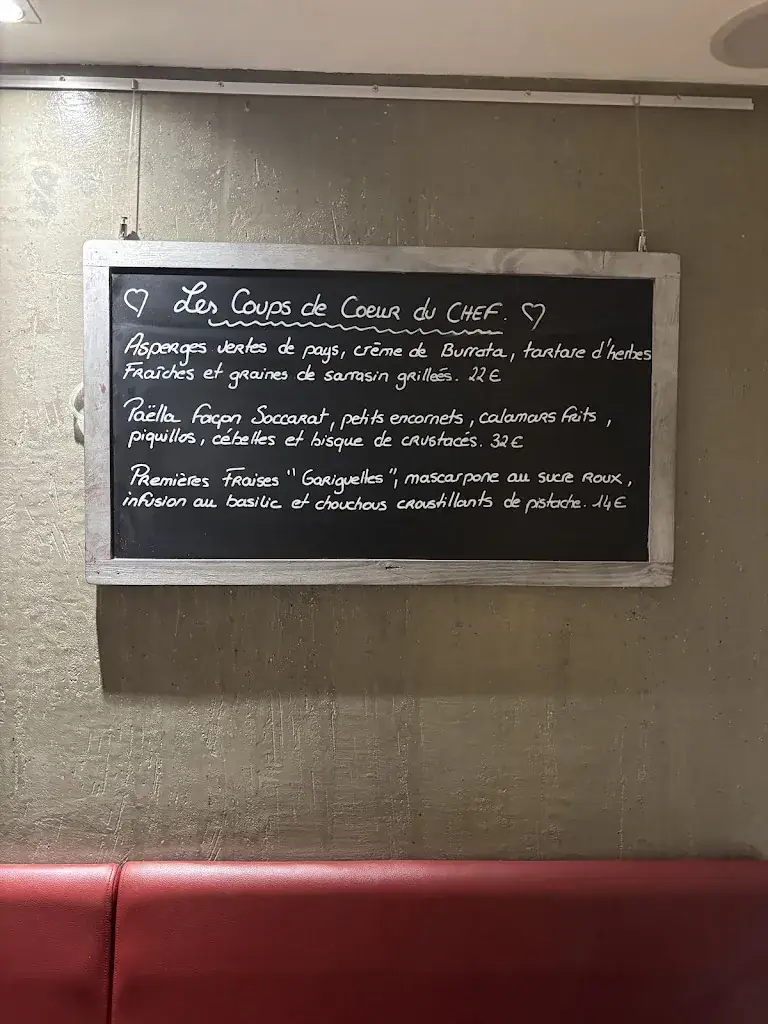 Les Coups de Coeur du CHEF.
Asperges vertes de pays, crème de Burrata, tartare d'herbes
Fraîches et graines de sarrasin grilleés. 22€
Paëlla façon Soccarat, petits encornets, calamars frits,
piquillos, cébettes et bisque de crustacés. 32€
Premières Fraises "Gariguelles", mascarpone au sucre roux,
infusion au basilic et chouchous croustillants de pistache. 14€